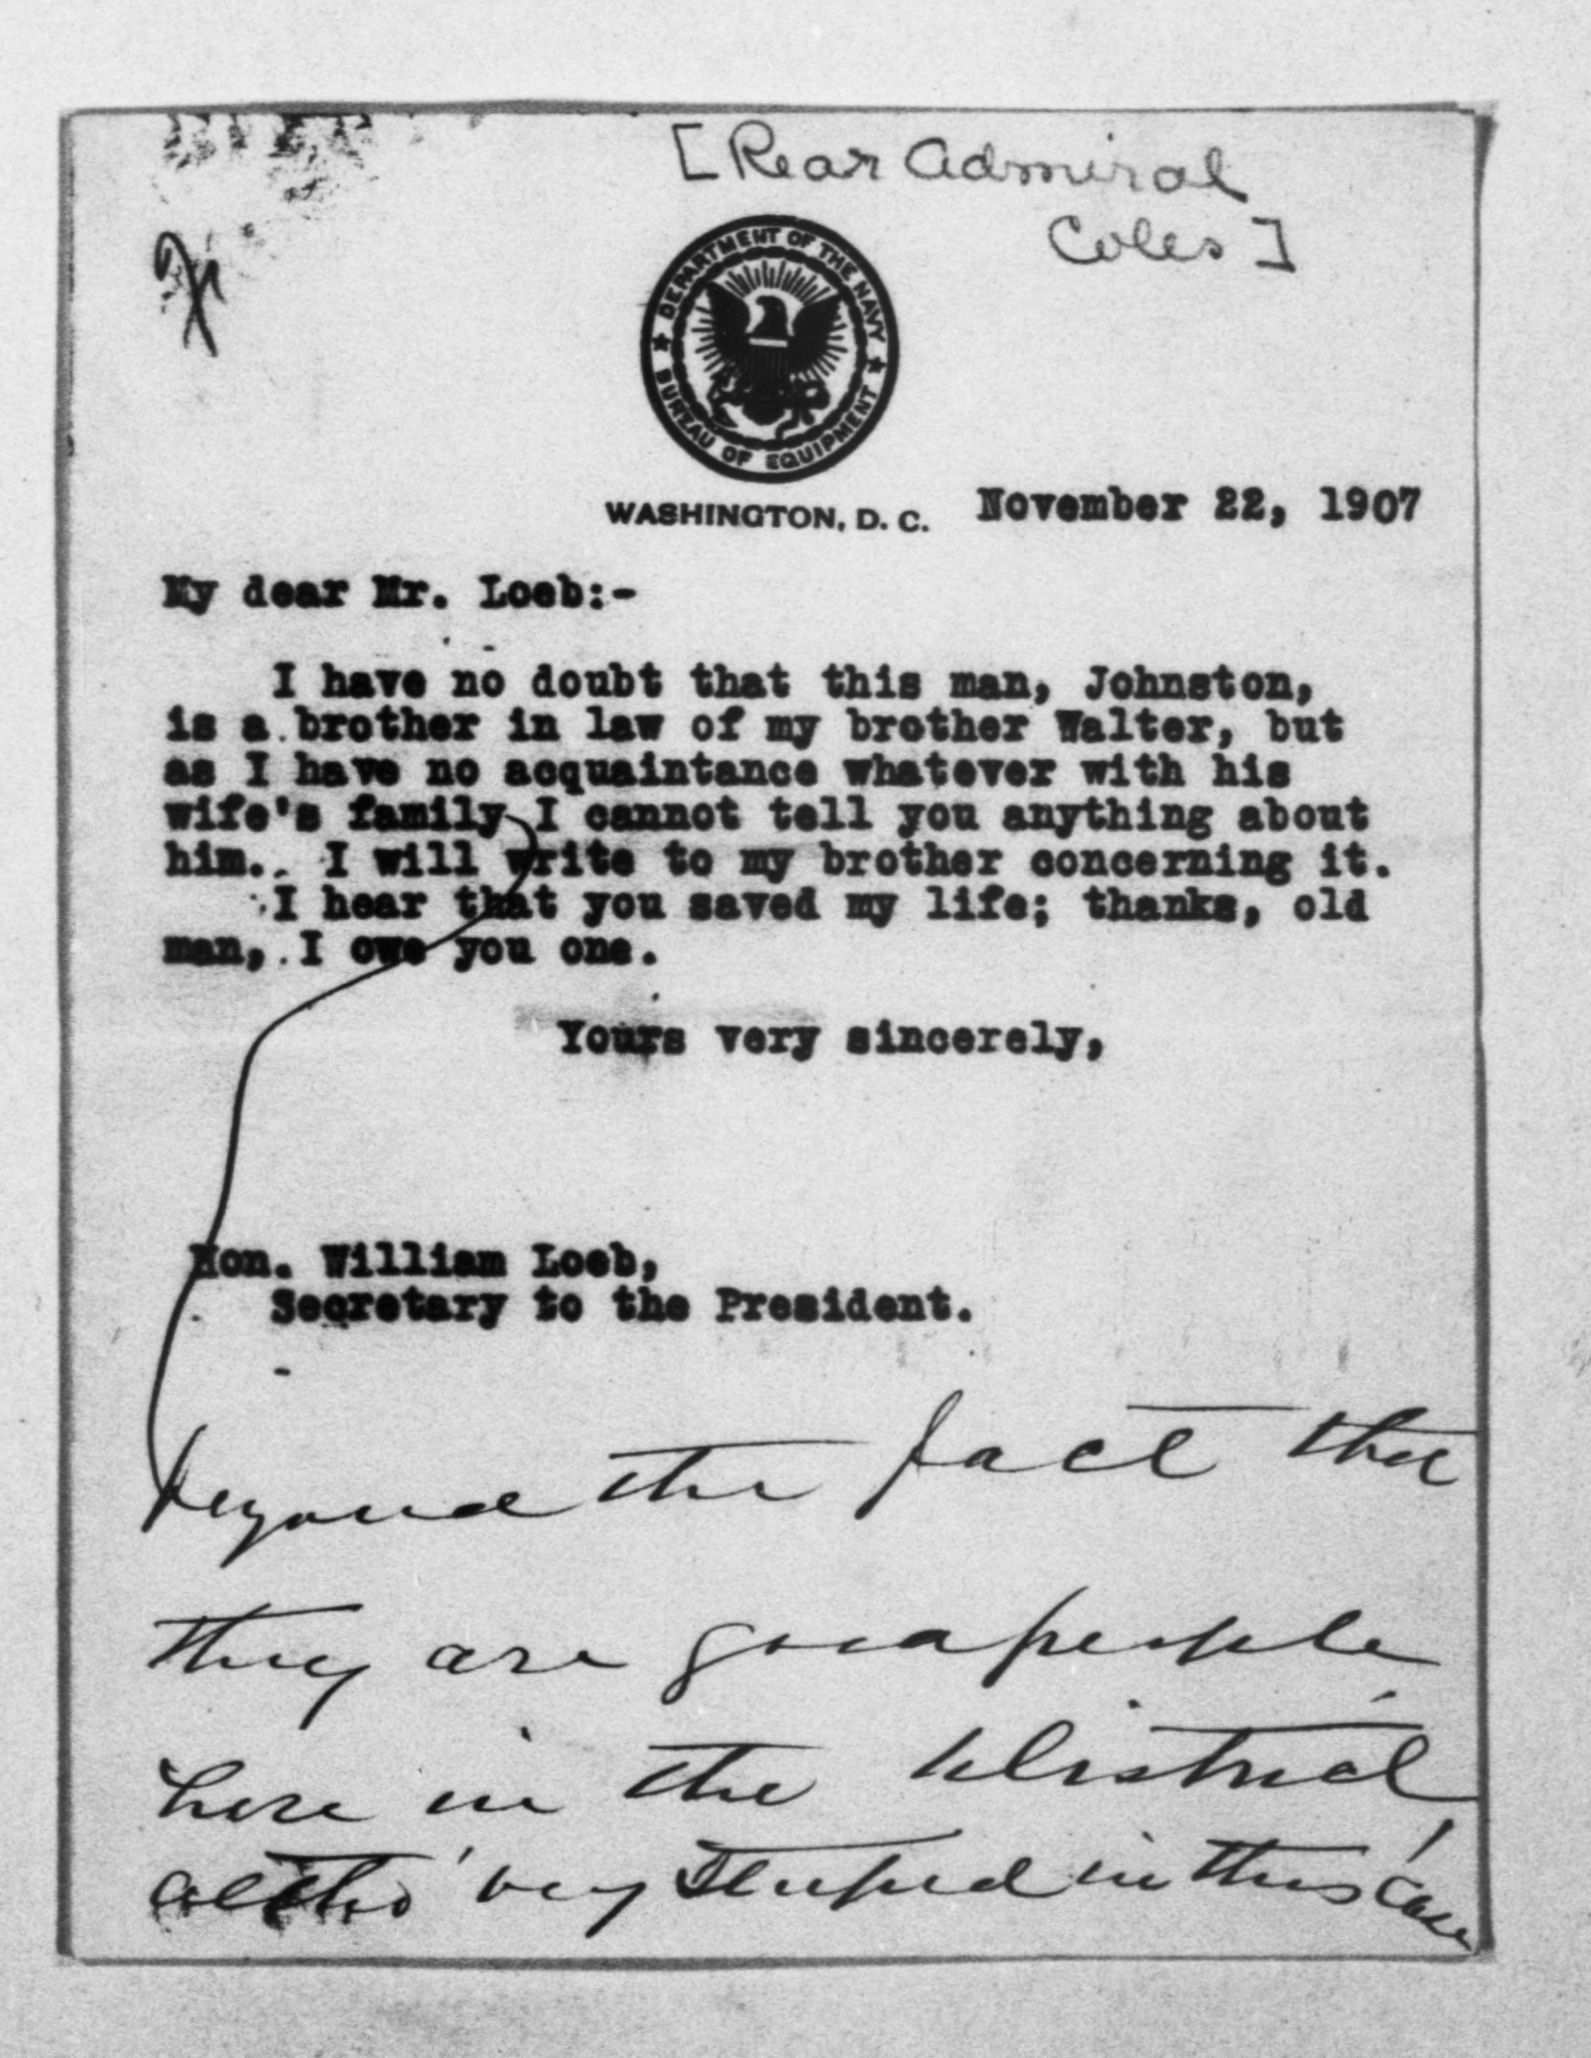 [Rear Admiral
Coles]
DEPARTMENT OF THE NAVY
BUREAU OF EQUIPMENT
WASHINGTON, D. C. November 22, 1907
My dear Mr. Loeb:-
I have no doubt that this man, Johnston,
is a brother in law of my brother Walter, but
as I have no acquaintance whatever with his
wife's family I cannot tell you anything about
him. I will write to my brother concerning it.
I hear that you saved my life; thanks, old
man, I owe you one.
Yours very sincerely,
Hon. William Loeb,
Secretary to the President.
beyond the fact that
they are good people
here in the District
altho' very stupid in this case